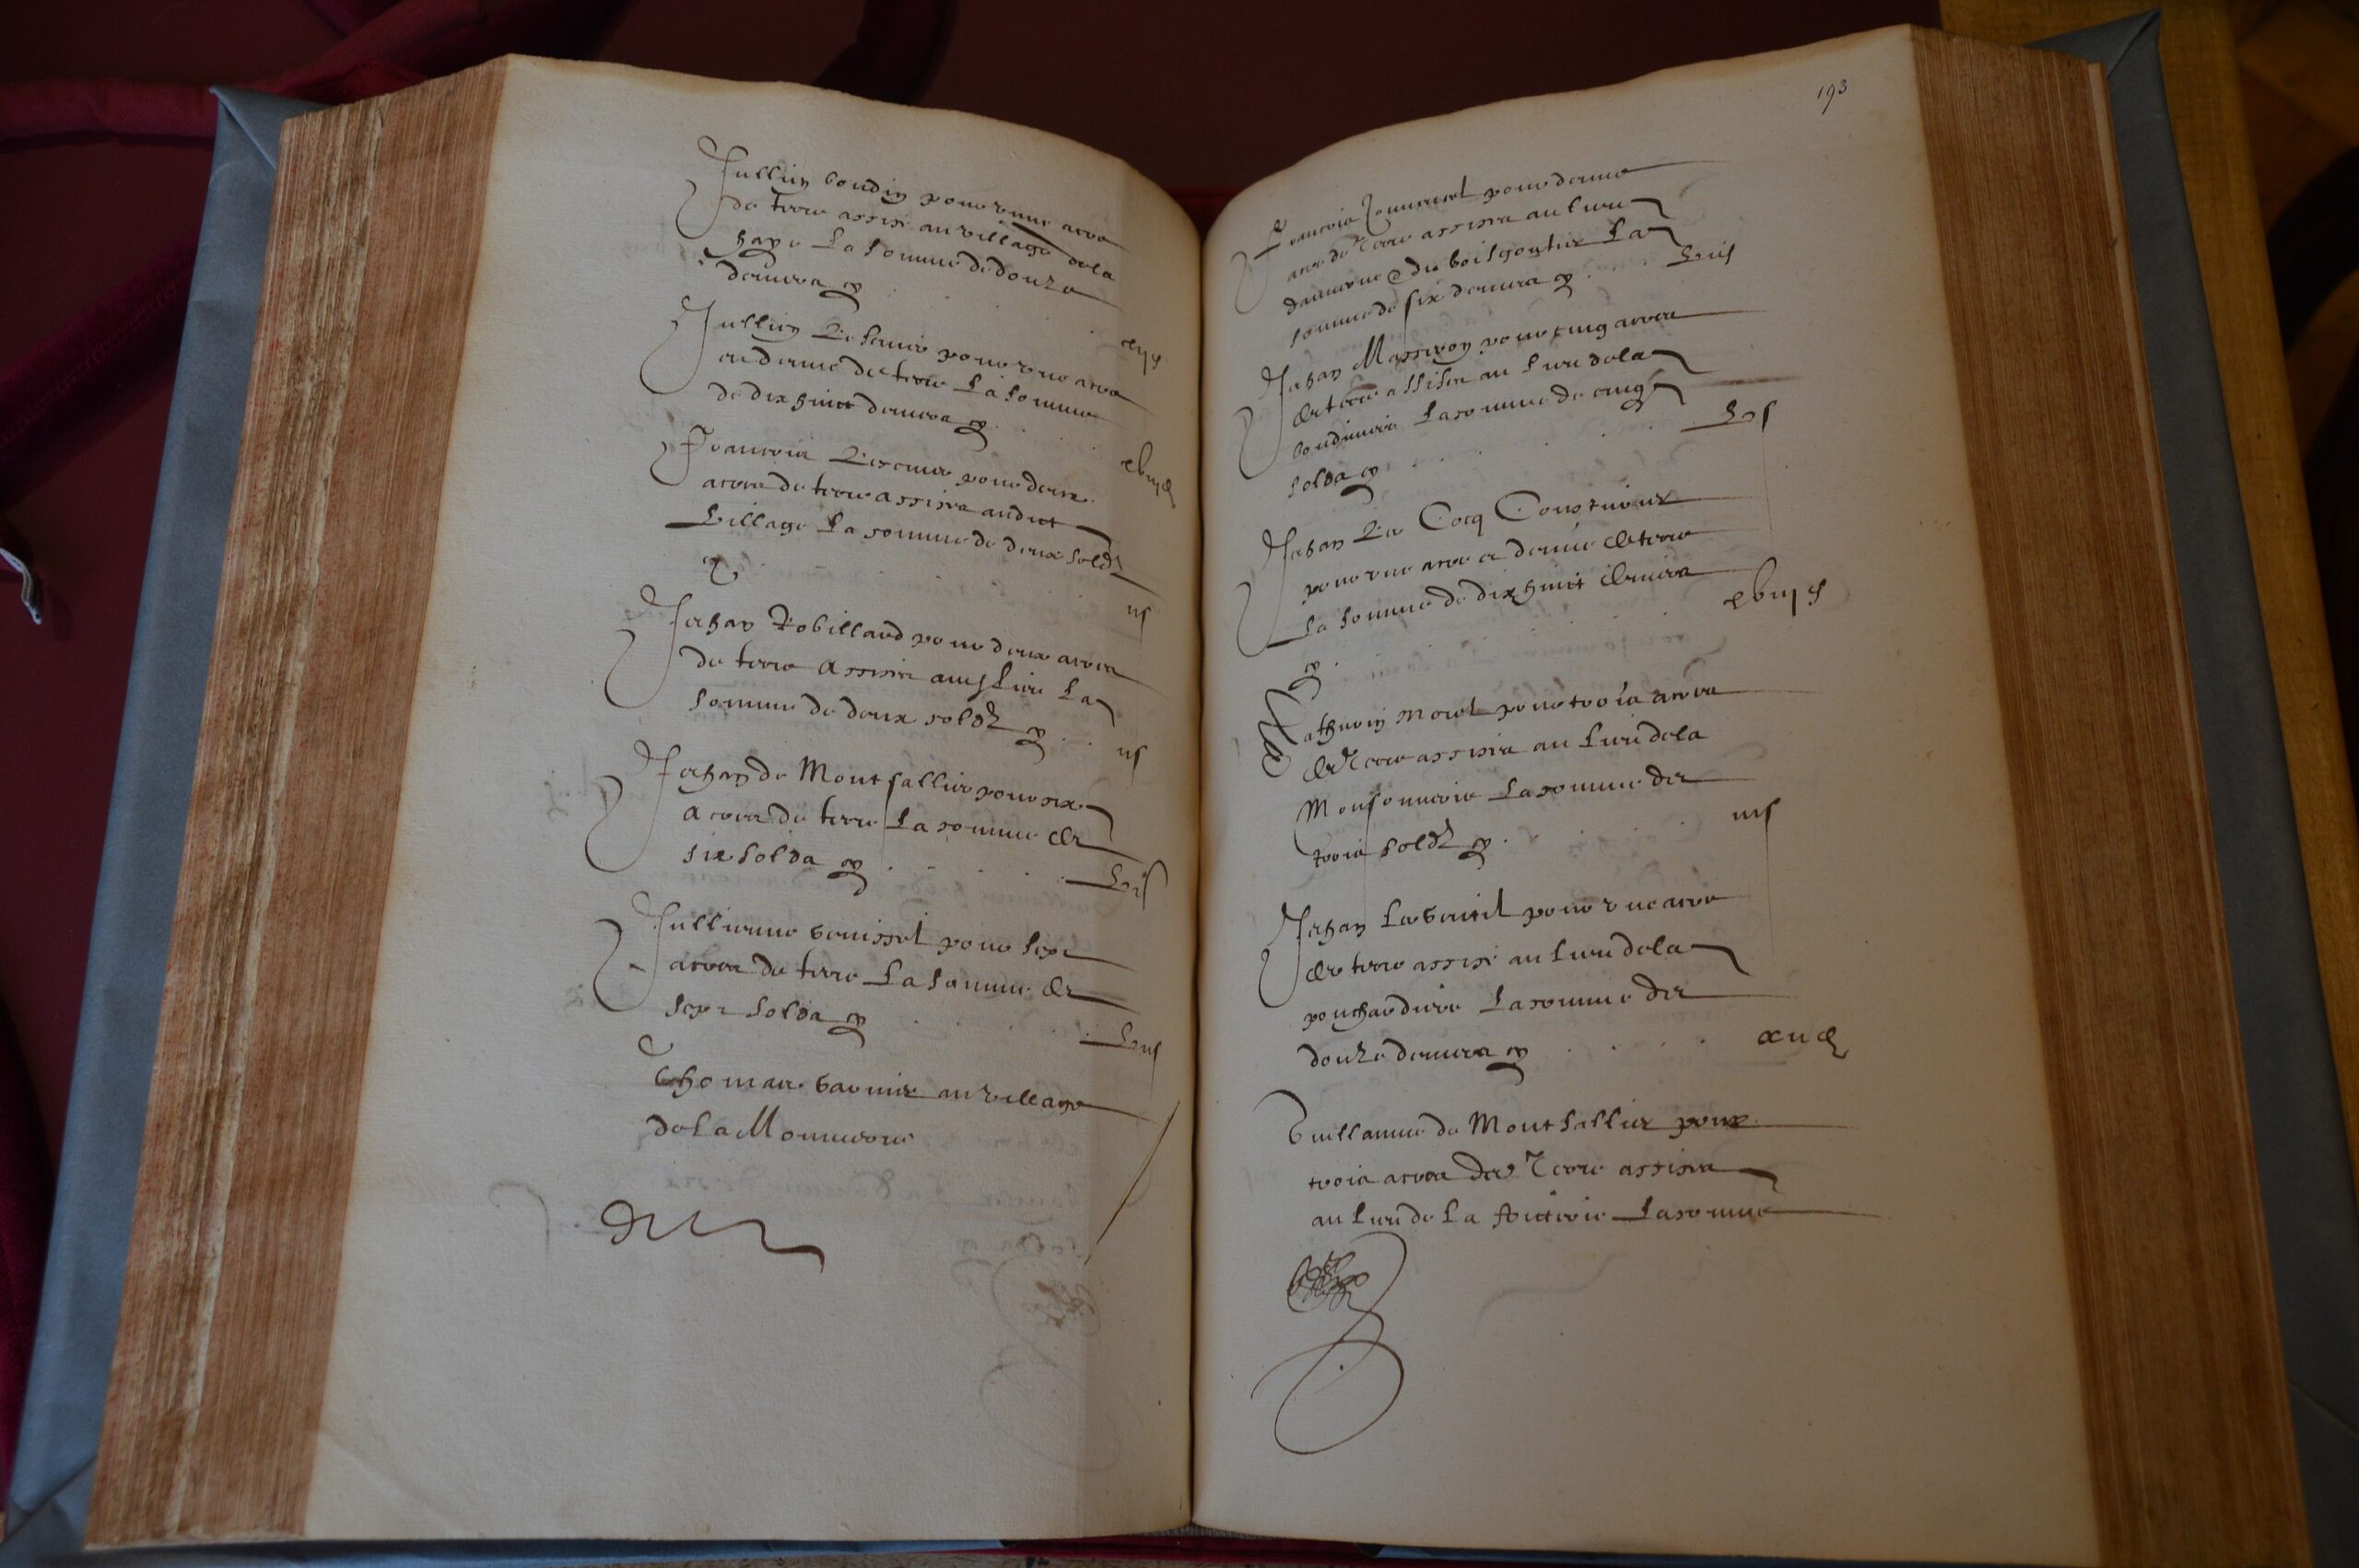 Jullien boudin pour une acre
de terre assise au village de la
haye La somme de douze
deniers
xii d
Jullien Le pour une acre
et demie de terre La somme
de dix huict deniers
xviii d
Francois pour deux
acres de terre assises audict
Village La somme de deux solz
ii s
Jehan Robillard pour deux acres
de terre assises La
somme de deux solz
ii s
Jehan de Montsallier pour six
acres de terre La somme de
six solds
vi s
Jullienne pour sept
acres de terre La somme de
sept solds
vii s
Thomas au village
de La Monnerie
193
Francois pour demie
acre de terre assise au lieu
du boisgontier La
somme de six deniers
vi d
Jehan Masseron pour cinq acres
de terre assises au lieu de la
La somme de cinq
solds
v s
Jehan Le Cocq
pour une acre et demie de terre
La somme de dix huict deniers
xviii d
Mathurin Morel pour trois acres
de terre assises au lieu de la
La somme de
trois solz
iii s
Jehan pour une acre
de terre assise au lieu de la
pouchardiere La somme de
douze deniers
xii d
Guillaume de Montsallier pour
trois acres de terre assises
au lieu de La La somme